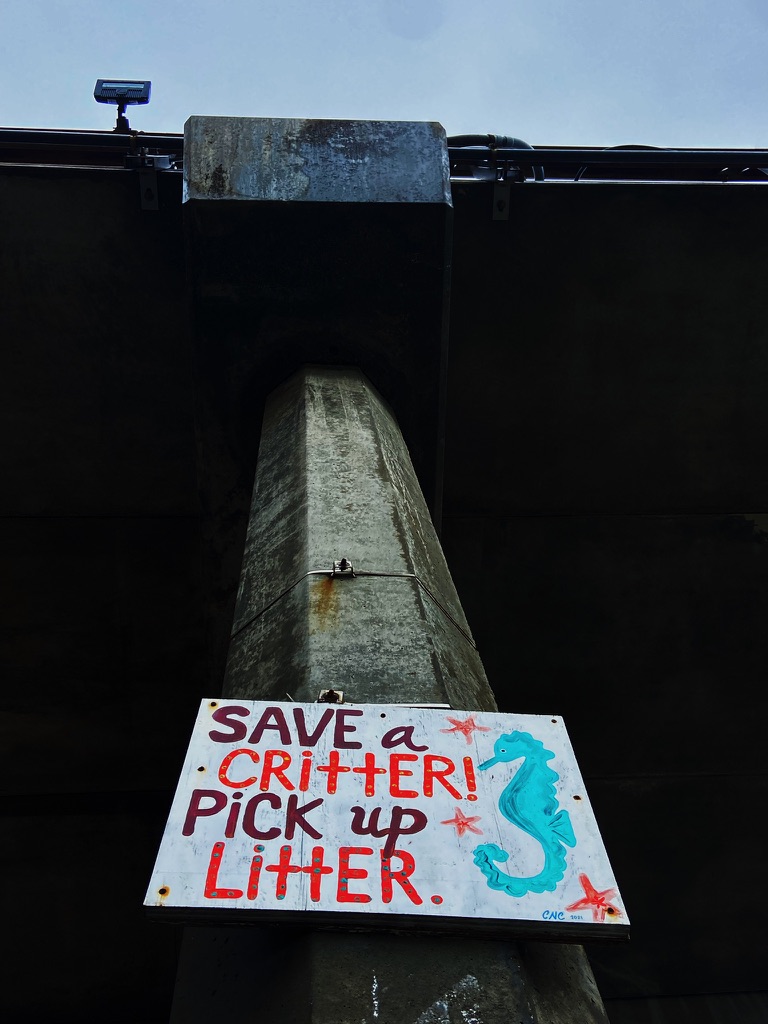 SAVE a
CRittER!
PiCK up
LittER.
CNC 2021